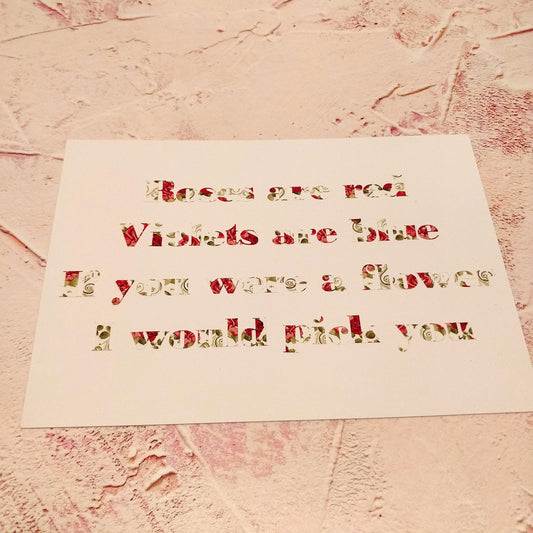 Roses are red
Violets are blue
If you were a flower
I would pick you